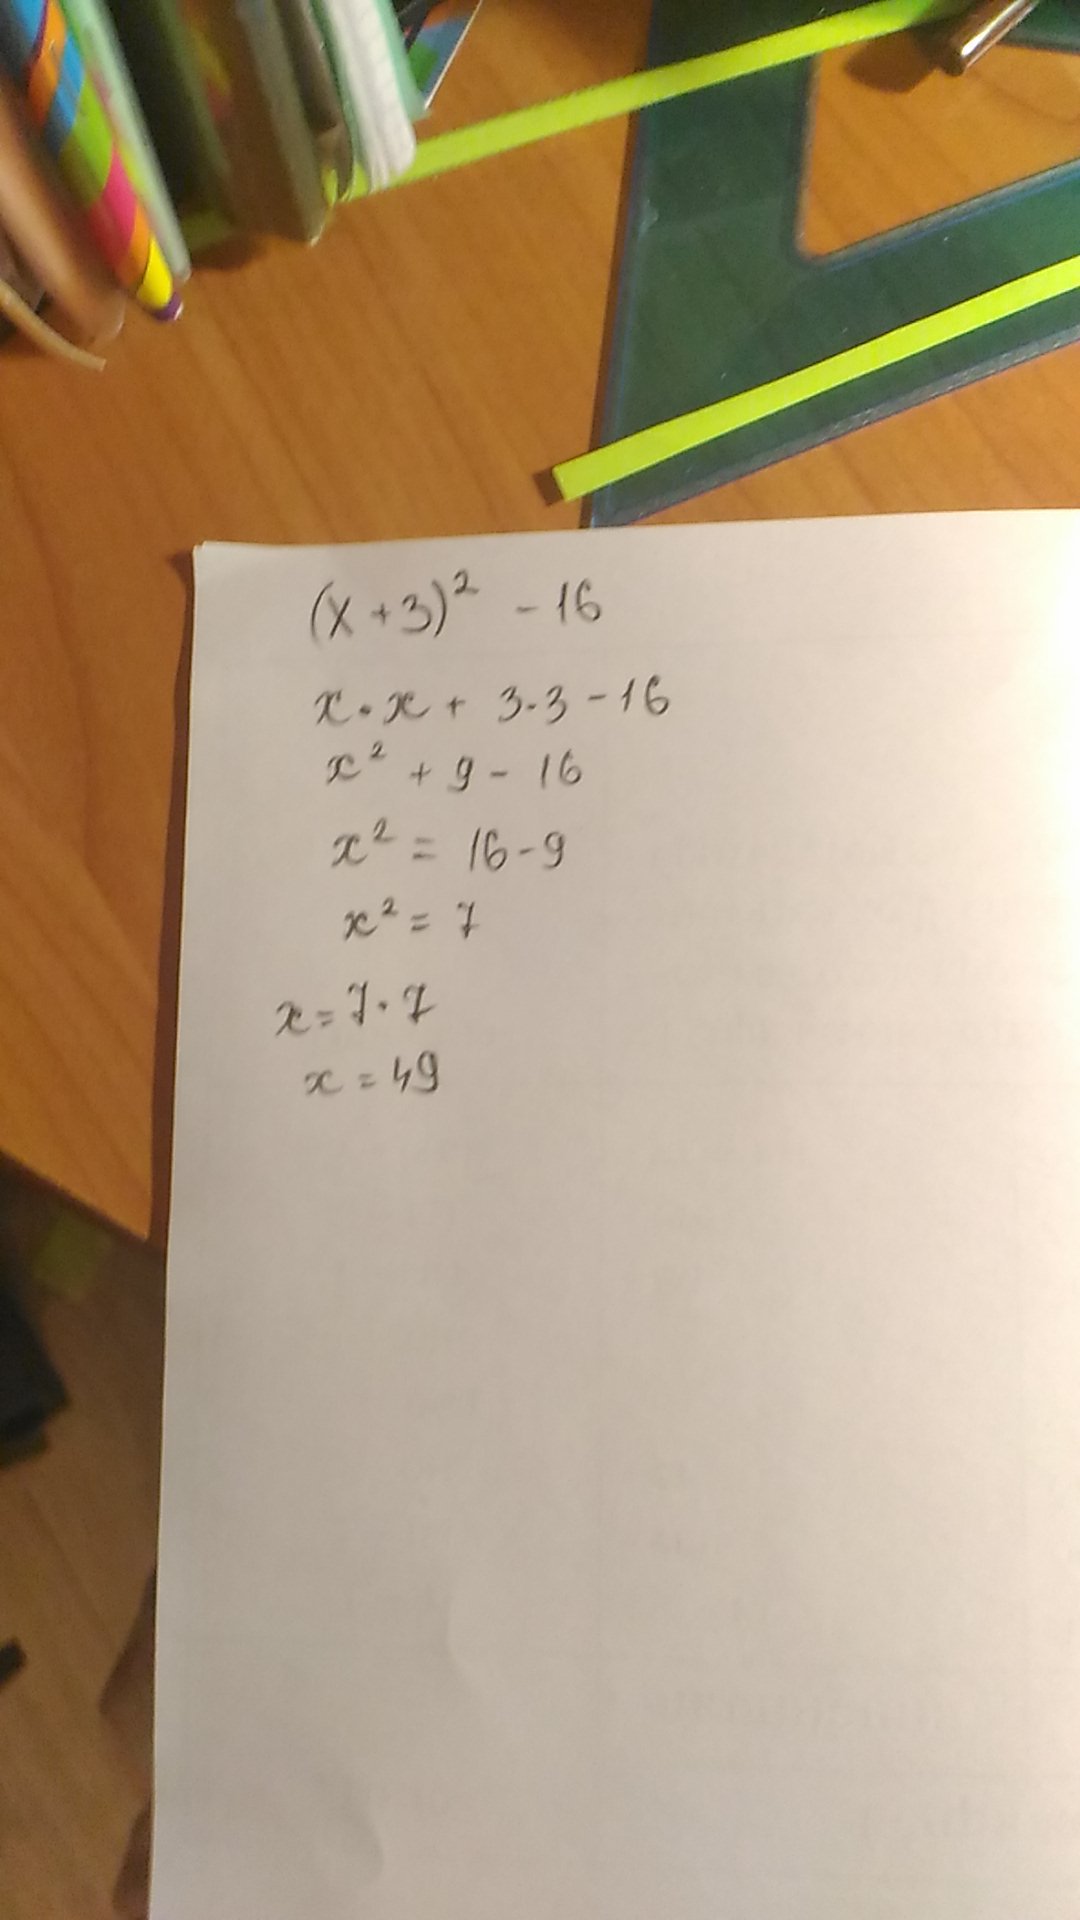 (x+3)² - 16
x·x + 3·3 - 16
x² + 9 - 16
x² = 16 - 9
x² = 7
x = 7·7
x = 49